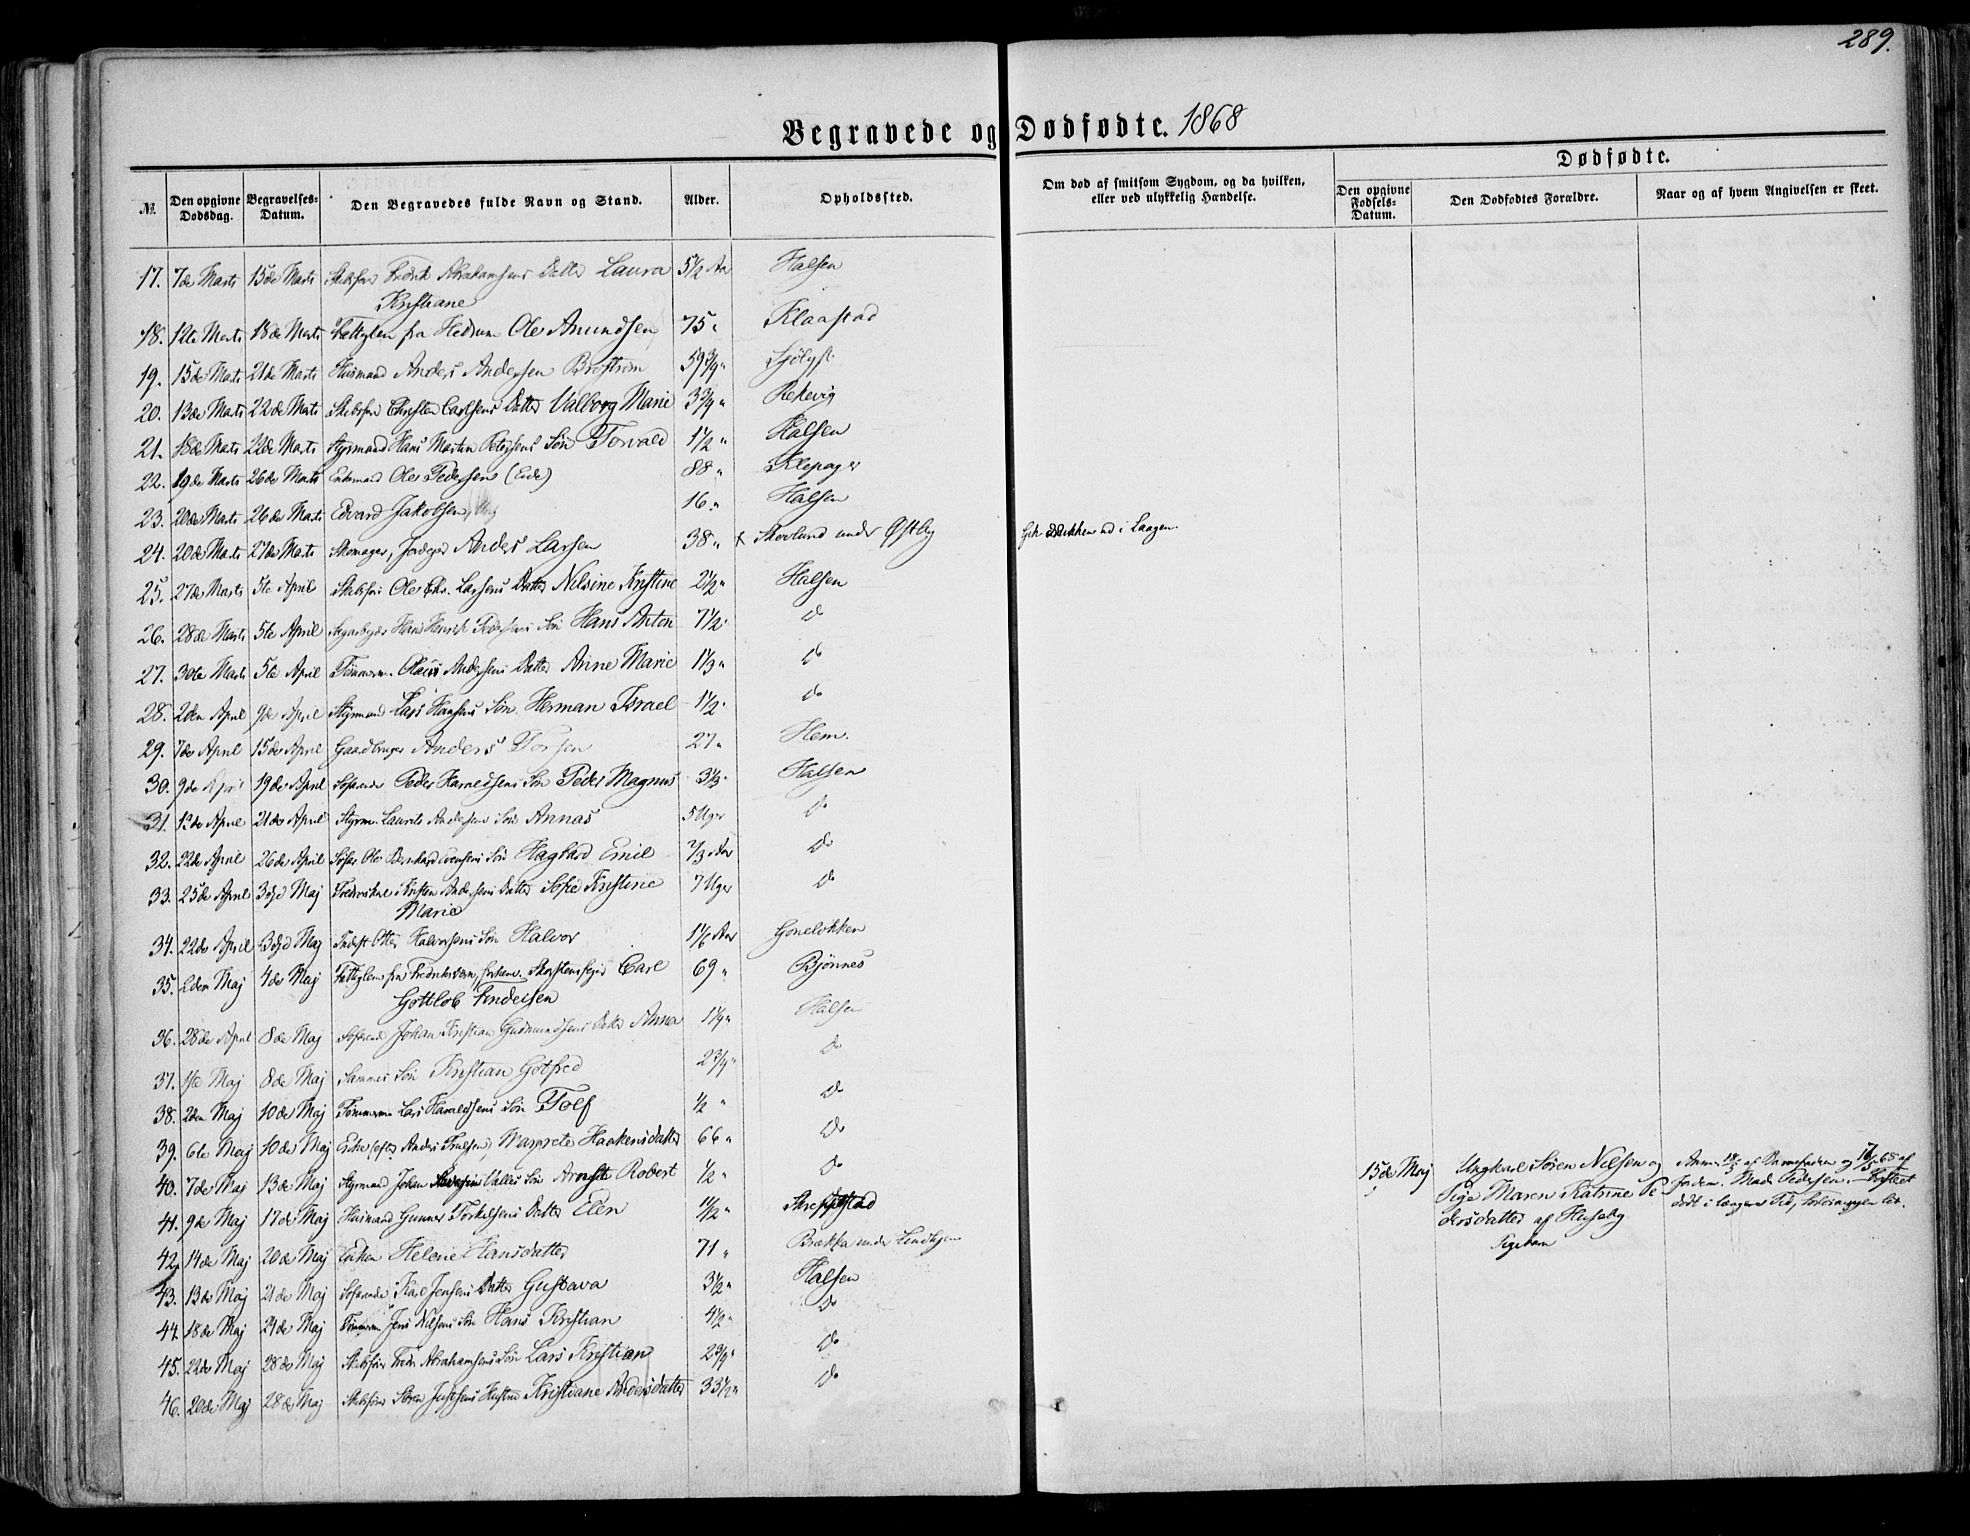 289.
Begravede og Dødfødte. 1868
Dødfødte.
№ Den opgivne Dødsdag. Begravelses-Datum. Den Begravedes fulde Navn og Stand. Alder. Opholdssted. Om død af smitsom Sygdom, og da hvilken, eller ved ulykkelig Hændelse. Den opgivne Fødsels-Datum. Den Dødfødtes Forældre. Naar og af hvem Angivelsen er skeet.
17. 7de Marts 15de Marts Skibsfør Fredrik Abrahamsens Datter Laura 5½ Aar Halsen
Kristiane
18. 12te Marts 18de Marts Fattiglem fra Hedrum Ole Amundsen 75 " Klaastad
19. 15de Marts 21de Marts Husmand Anders Andersen Brostrøm 59 3/4 " Sjølyst
20. 13de Marts 22de Marts Skibsfør Christen Carlsens Datter Valborg Marie 3 3/4 " Rekevig
21. 18de Marts 22de Marts Styrmand Hans Martin Petersens Søn Torvald 1½ " Halsen
22. 19de Marts 26de Marts Enkemand Ole Pedersen (Eide) 88 " Klepager
23. 20de Marts 26de Marts Edvard Jakobsen, 16 " Halsen
24. 20de Marts 27de Marts Skomager, Anders Larsen 38 " x Skovlund under Østby Gik drukken ud i Laagen.
25. 27de Marts 5te April Skibsfør Ole Chr. Larsens Datter Nilsine Kristine 2½ " Halsen
26. 28de Marts 5te April Hans Henrik Pedersens Søn Hans Anton 7½ " Do
27. 30te Marts 5te April Tømmerm. Olaus Andersens Datter Anne Marie 1⅓ " Do
28. 2den April 9de April Styrmand Lars Hansens Søn Herman Israel 1½ " Do
29. 7de April 15de April Gaardbruger Anders Torsen 27 " Hem.
30. 9de April 19de April Søfarende Peder Haraldsens Søn Peder Magnus 3⅓ " Halsen
31. 12de April 21de April Styrm. Laurits Andersens Søn Annas 5 Uger Do
32. 22de April 26de April Søfar. Ole Bernhard Evensens Søn Hagbard Emil 2/3 Aar Do
33. 25de April 3dje Maj Kristen Andersens Datter Sofie Kristine 7 Uger Do
Marie
34. 22de April 3dje Maj Otter Halvorsens Søn Halvor 1 1/6 Aar Goneløkken
35. 2den Maj 4de Maj Fattiglem fra Fredriksværn, forhenv. Skorstensfejer Carl 69 " Bjønnes
Gottlob Findeisen
36. 28de April 8de Maj Søfarende Johan Kristian Gudmundsens Datter Anna 1¼ " Halsen
37. 1ste Maj 8de Maj Sammes Søn Kristian Gotfred 2 3/4 " Do
38. 2den Maj 10de Maj Tømmerm. Lars Haraldsens Søn Tolf ½ " Do
39. 6te Maj 10de Maj Enke (efter Anders Truelsen) Margrete Haakensdatter 66 " Do
40. 7de Maj 13de Maj Styrmand Johan Valles Søn Arnst Robert ½ " Do
41. 9de Maj 17de Maj Husmand Gunner Torkelsens Datter Elen 1½ " Skreppestad
42. 14de Maj 20de Maj Enken Helene Hansdatter 71 " Brækka under Lindhjem
43. 13de Maj 21de Maj Søfarende Karl Jensens Datter Gustava 3½ " Halsen
44. 18de Maj 24de Maj Tømmerm Jens Nilsens Søn Hans Kristian 4½ " Do
45. 22de Maj 28de Maj Skibsfør Fredr. Abrahamsens Søn Lars Kristian 2 3/4 " Do
46. 20de Maj 28de Maj Skibsfører Søren Justsens Hustru Kristiane Andersdatter 33½ " Do
15de Maj Ungkarl Søren Nilsen og
Pige Maren Katrine Pe-
dersdatter af Huseby
Pigebarn
Anm. 18/5 af Barnefaderen og 16/5 68 af
Jordem. Mad. Pedersen.